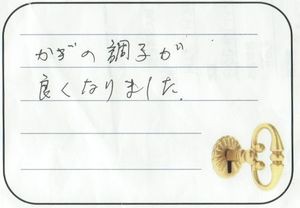 かぎの調子が
良くなりました.